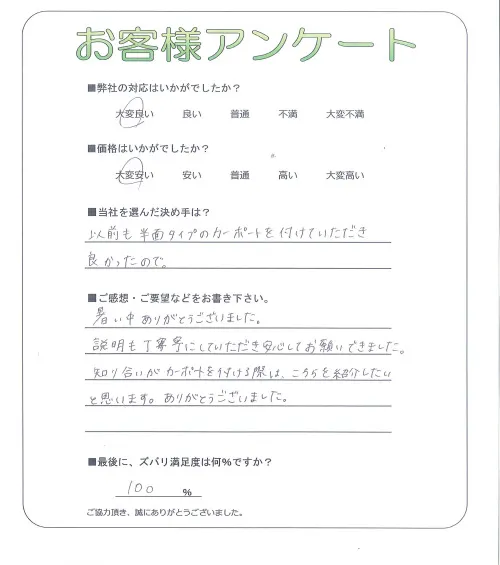 お客様アンケート
■弊社の対応はいかがでしたか？
大変良い 良い 普通 不満 大変不満
■価格はいかがでしたか？
大変安い 安い 普通 高い 大変高い
■当社を選んだ決め手は？
以前も半面タイプのカーポートを付けていただき
良かったので。
■ご感想・ご要望などをお書き下さい。
暑い中ありがとうございました。
説明も丁寧にしていただき安心してお願いできました。
知り合いがカーポートを付ける際は、こちらを紹介したい
と思います。ありがとうございました。
■最後に、ズバリ満足度は何%ですか？
100 %
ご協力頂き、誠にありがとうございました。